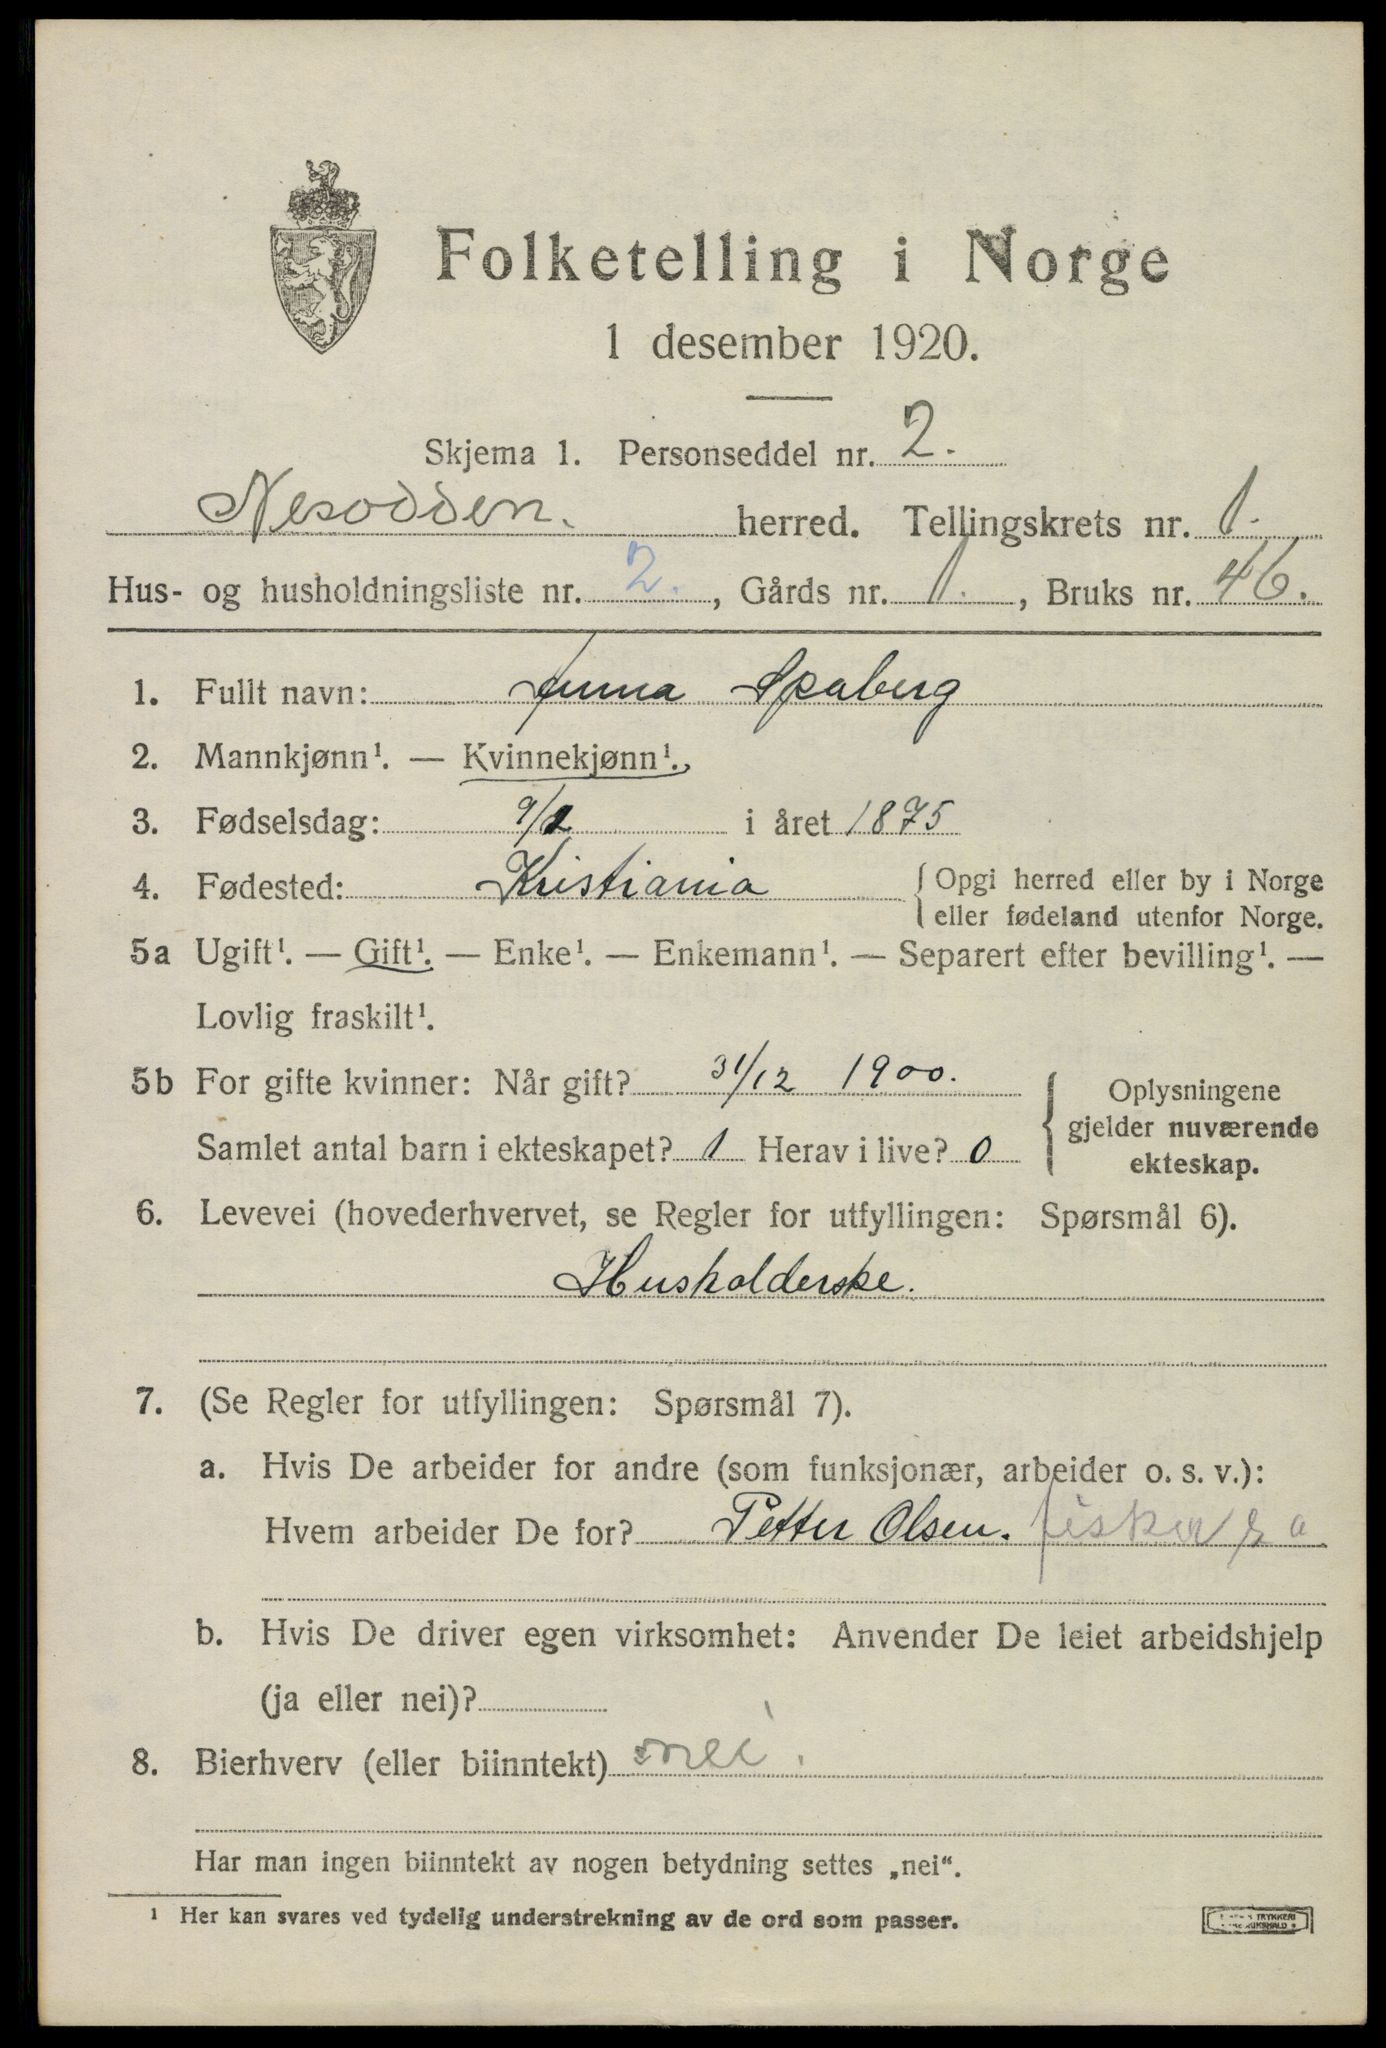 Folketelling i Norge
1 desember 1920.
Skjema 1. Personseddel nr. 2.
Nesodden. herred. Tellingskrets nr. 1.
Hus- og husholdningsliste nr. 2., Gårds nr. 1., Bruks nr. 46.
1. Fullt navn: Anna Spaberg
2. Mannkjønn¹. — Kvinnekjønn¹.
3. Fødselsdag: 9/2 i året 1875
4. Fødested: Kristiania { Opgi herred eller by i Norge
eller fødeland utenfor Norge.
5a Ugift¹. — Gift¹. — Enke¹. — Enkemann¹. — Separert efter bevilling¹. —
Lovlig fraskilt¹.
5b For gifte kvinner: Når gift? 31/12 1900.
Samlet antal barn i ekteskapet? 1 Herav i live? 0
{ Oplysningene
gjelder nuværende
ekteskap.
6. Levevei (hovederhvervet, se Regler for utfyllingen: Spørsmål 6).
Husholderske.
7. (Se Regler for utfyllingen: Spørsmål 7).
a. Hvis De arbeider for andre (som funksjonær, arbeider o. s. v.):
Hvem arbeider De for? Petter Olsen. fisker
b. Hvis De driver egen virksomhet: Anvender De leiet arbeidshjelp
(ja eller nei)?
8. Bierhverv (eller biinntekt) nei.
Har man ingen biinntekt av nogen betydning settes „nei“.
¹ Her kan svares ved tydelig understrekning av de ord som passer.